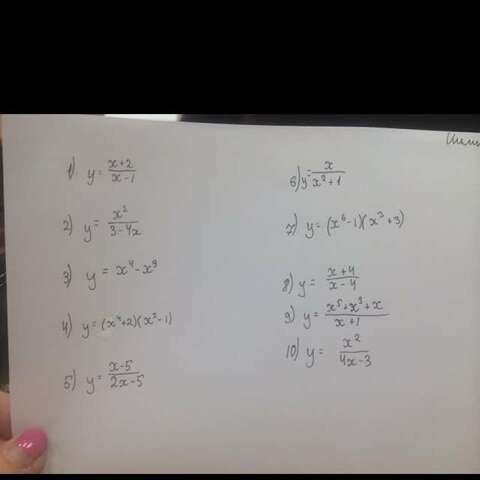 1) y = \frac{x+2}{x-1}
2) y = \frac{x^2}{3-4x}
3) y = x^4 - x^9
4) y = (x^4+2)(x^3-1)
5) y = \frac{x-5}{2x-5}
6) y = \frac{x}{x^2+1}
7) y = (x^6-1)(x^3+3)
8) y = \frac{x+4}{x-4}
9) y = \frac{x^5+x^3+x}{x+1}
10) y = \frac{x^2}{4x-3}